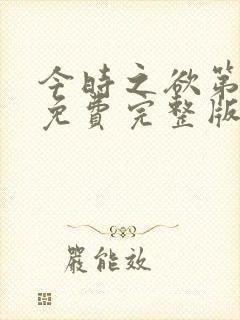 今时之欲第
免费完整版
严能效